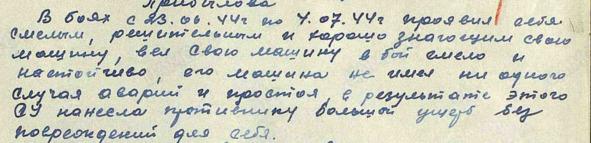 Прибылова
В боях с 23.06.44г по 4.07.44г проявил себя
смелым, решительным и хорошо знающим свою
машину, вел свою машину в бой смело и
настойчиво, его машина не имея ни одного
случая аварий и простоя в результате этого
СУ нанесла противнику большой ущерб без
повреждений для себя.